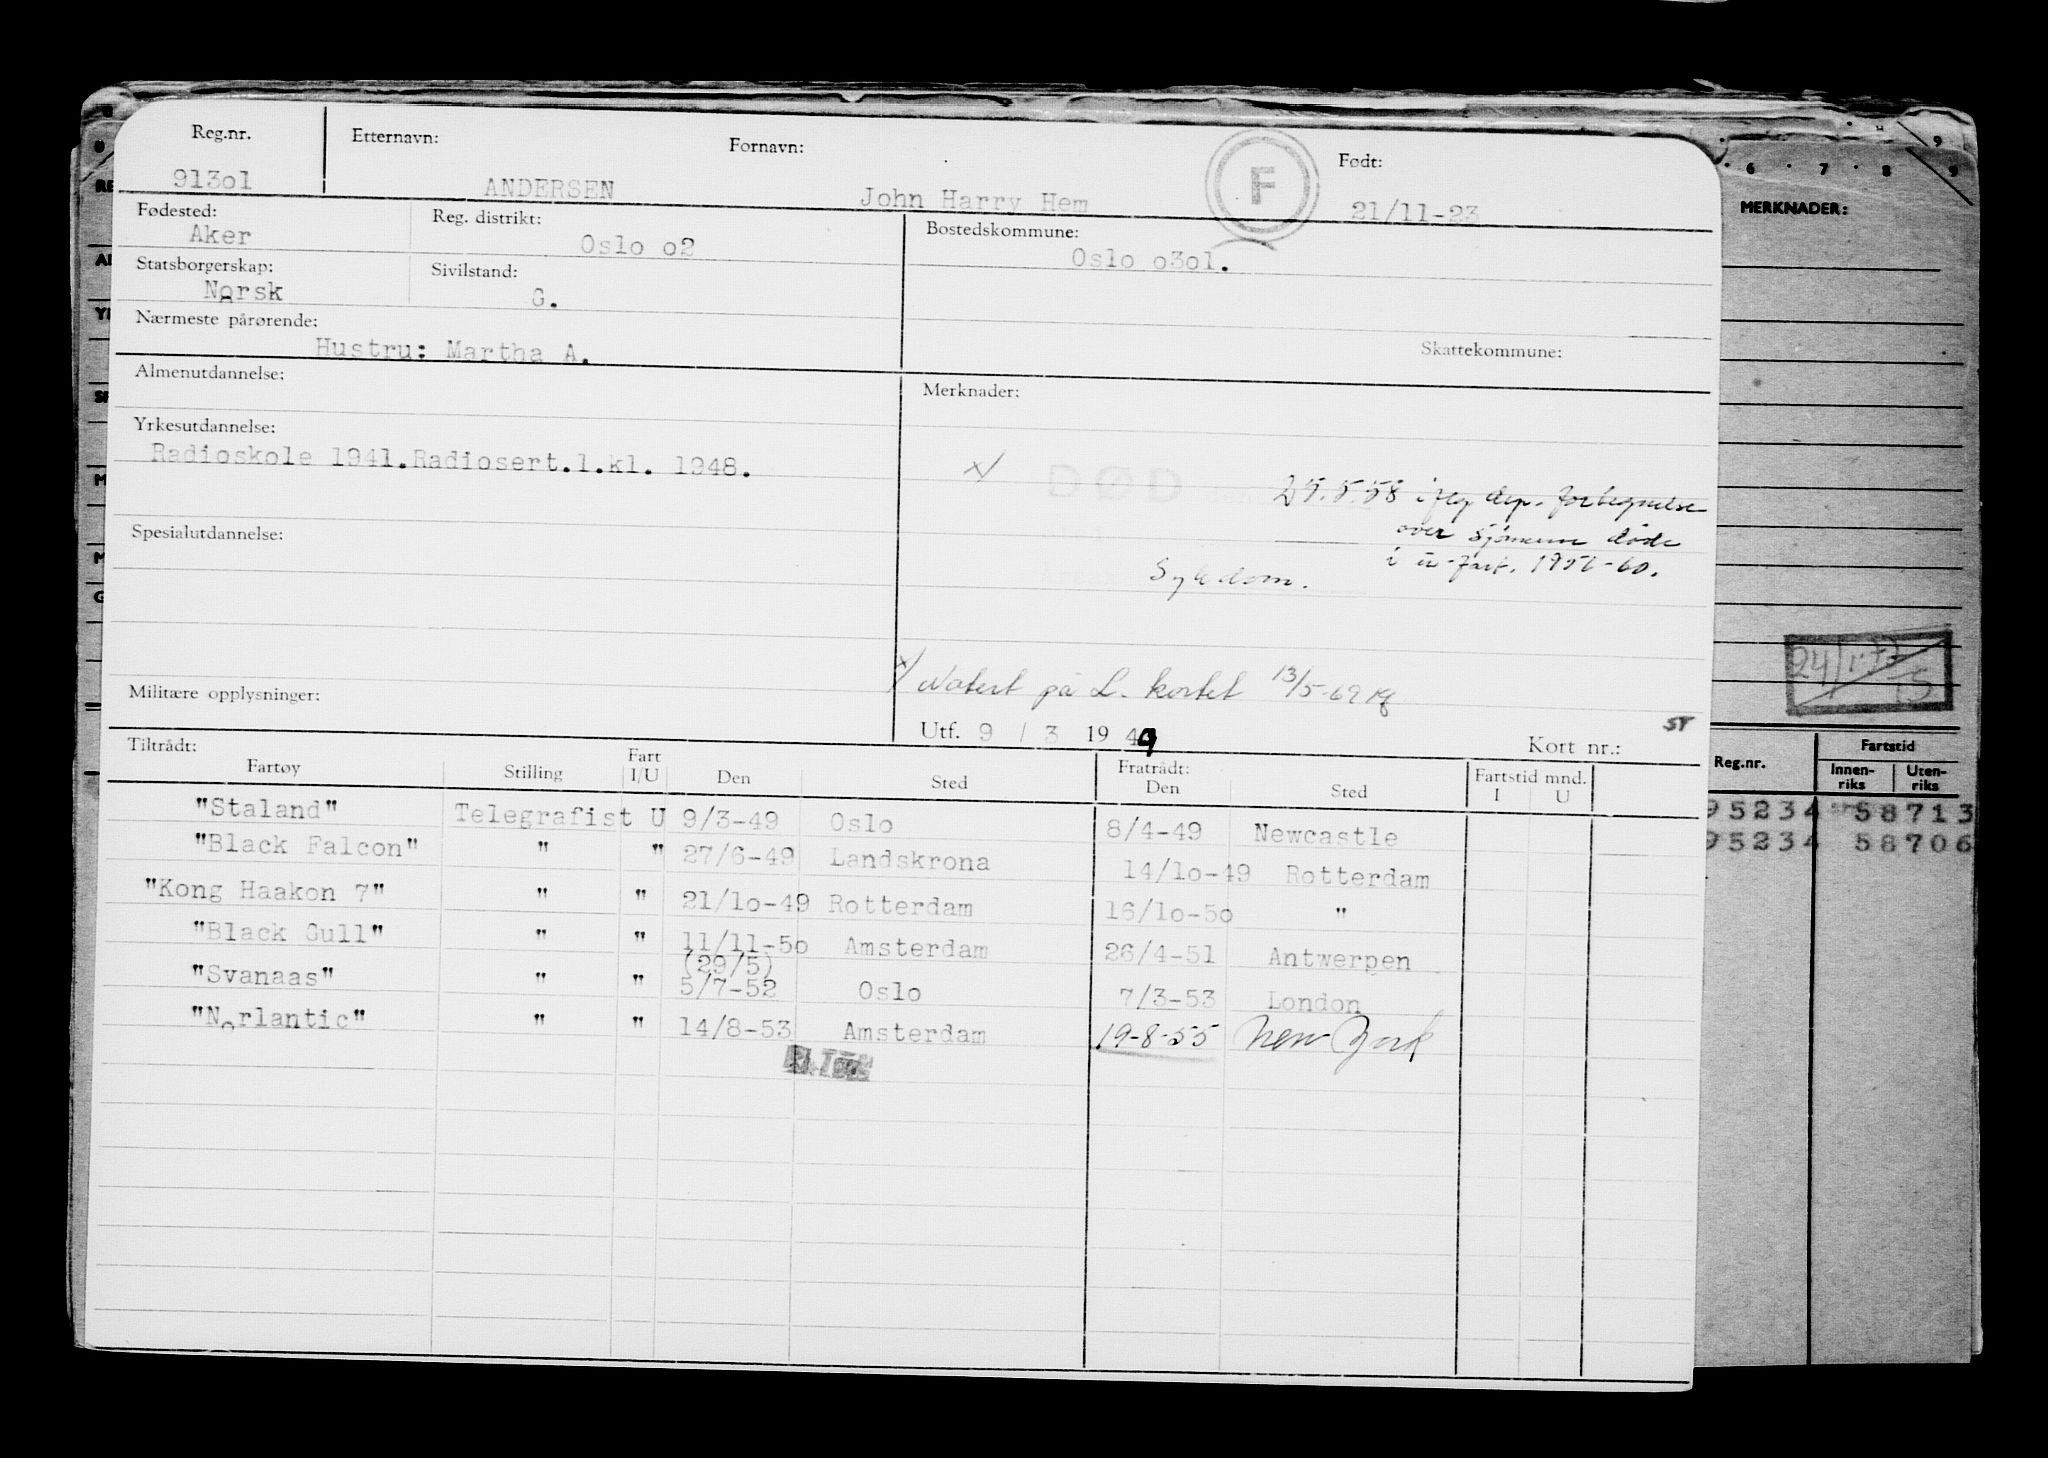 Reg.nr. Etternavn: Fornavn: F Født:
913o1 ANDERSEN John Harry Hem 21/11-23
Fødested: Reg. distrikt: Bostedskommune:
Aker Oslo o2 Oslo o3o1.
Statsborgerskap: Sivilstand:
Norsk G.
Nærmeste pårørende: Skattekommune:
Hustru: Martha A.
Almenutdannelse: Merknader:
Yrkesutdannelse:
Radioskole 1941.Radiosert.1.kl. 1948.
x/ DØD den 25.5.58 i flg dep. fortegnelse
over sjömenn döde
i u-fart. 1956-60.
Sykdom.
Spesialutdannelse:
x/ Notert på L. kortet 13/5-69
Militære opplysninger:
Utf. 9 / 3 1949 Kort nr.: ST
Tiltrådt: Fratrådt:
Fartøy Stilling Fart I/U Den Sted Den Sted Fartstid mnd. I U
"Staland" Telegrafist U 9/3-49 Oslo 8/4-49 Newcastle
"Black Falcon" " " 27/6-49 Landskrona 14/1o-49 Rotterdam
"Kong Haakon 7" " " 21/1o-49 Rotterdam 16/1o-5o "
"Black Gull" " " 11/11-5o Amsterdam 26/4-51 Antwerpen
(29/5)
"Svanaas" " " 5/7-52 Oslo 7/3-53 London
"Norlantic" " " 14/8-53 Amsterdam 19-8-55 New York
6 7 8 9
9
MERKNADER:
Reg.nr. Fartstid
Innen-riks Uten-riks
95234 58713
95234 58706